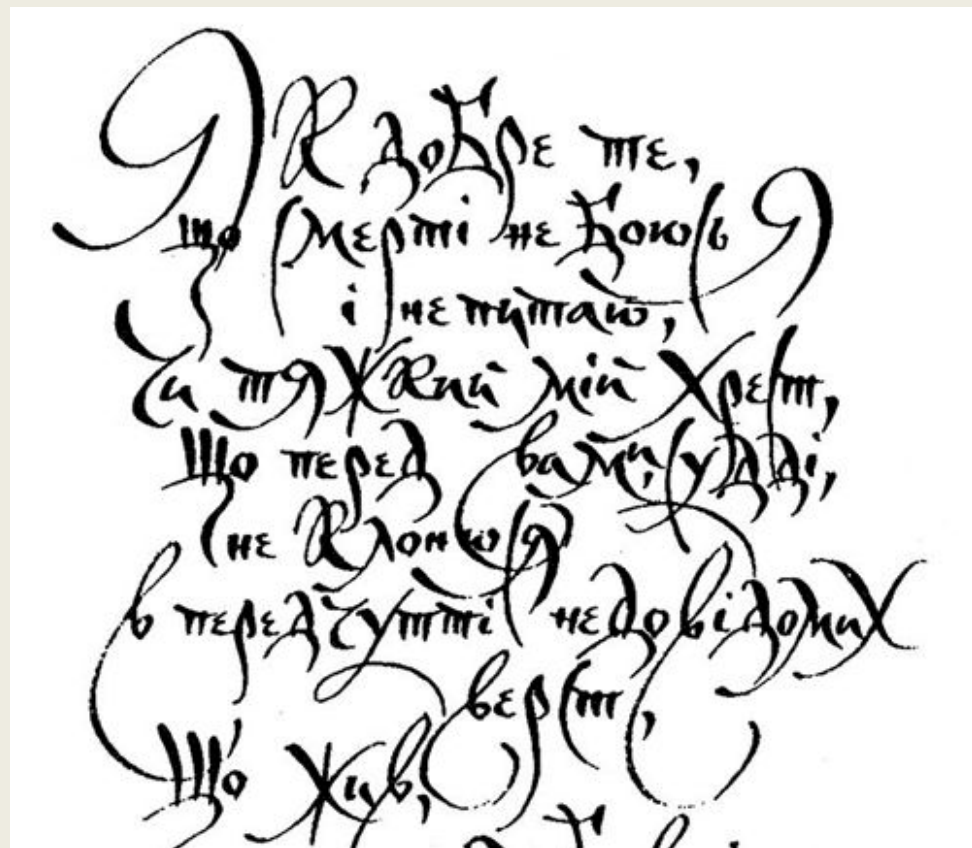 Як добре те,
що смерті не боюсь я
і не питаю,
чи тяжкий мій хрест,
Що перед вами, судді,
не клонюся
в передчутті недовідомих
верст,
Що жив,